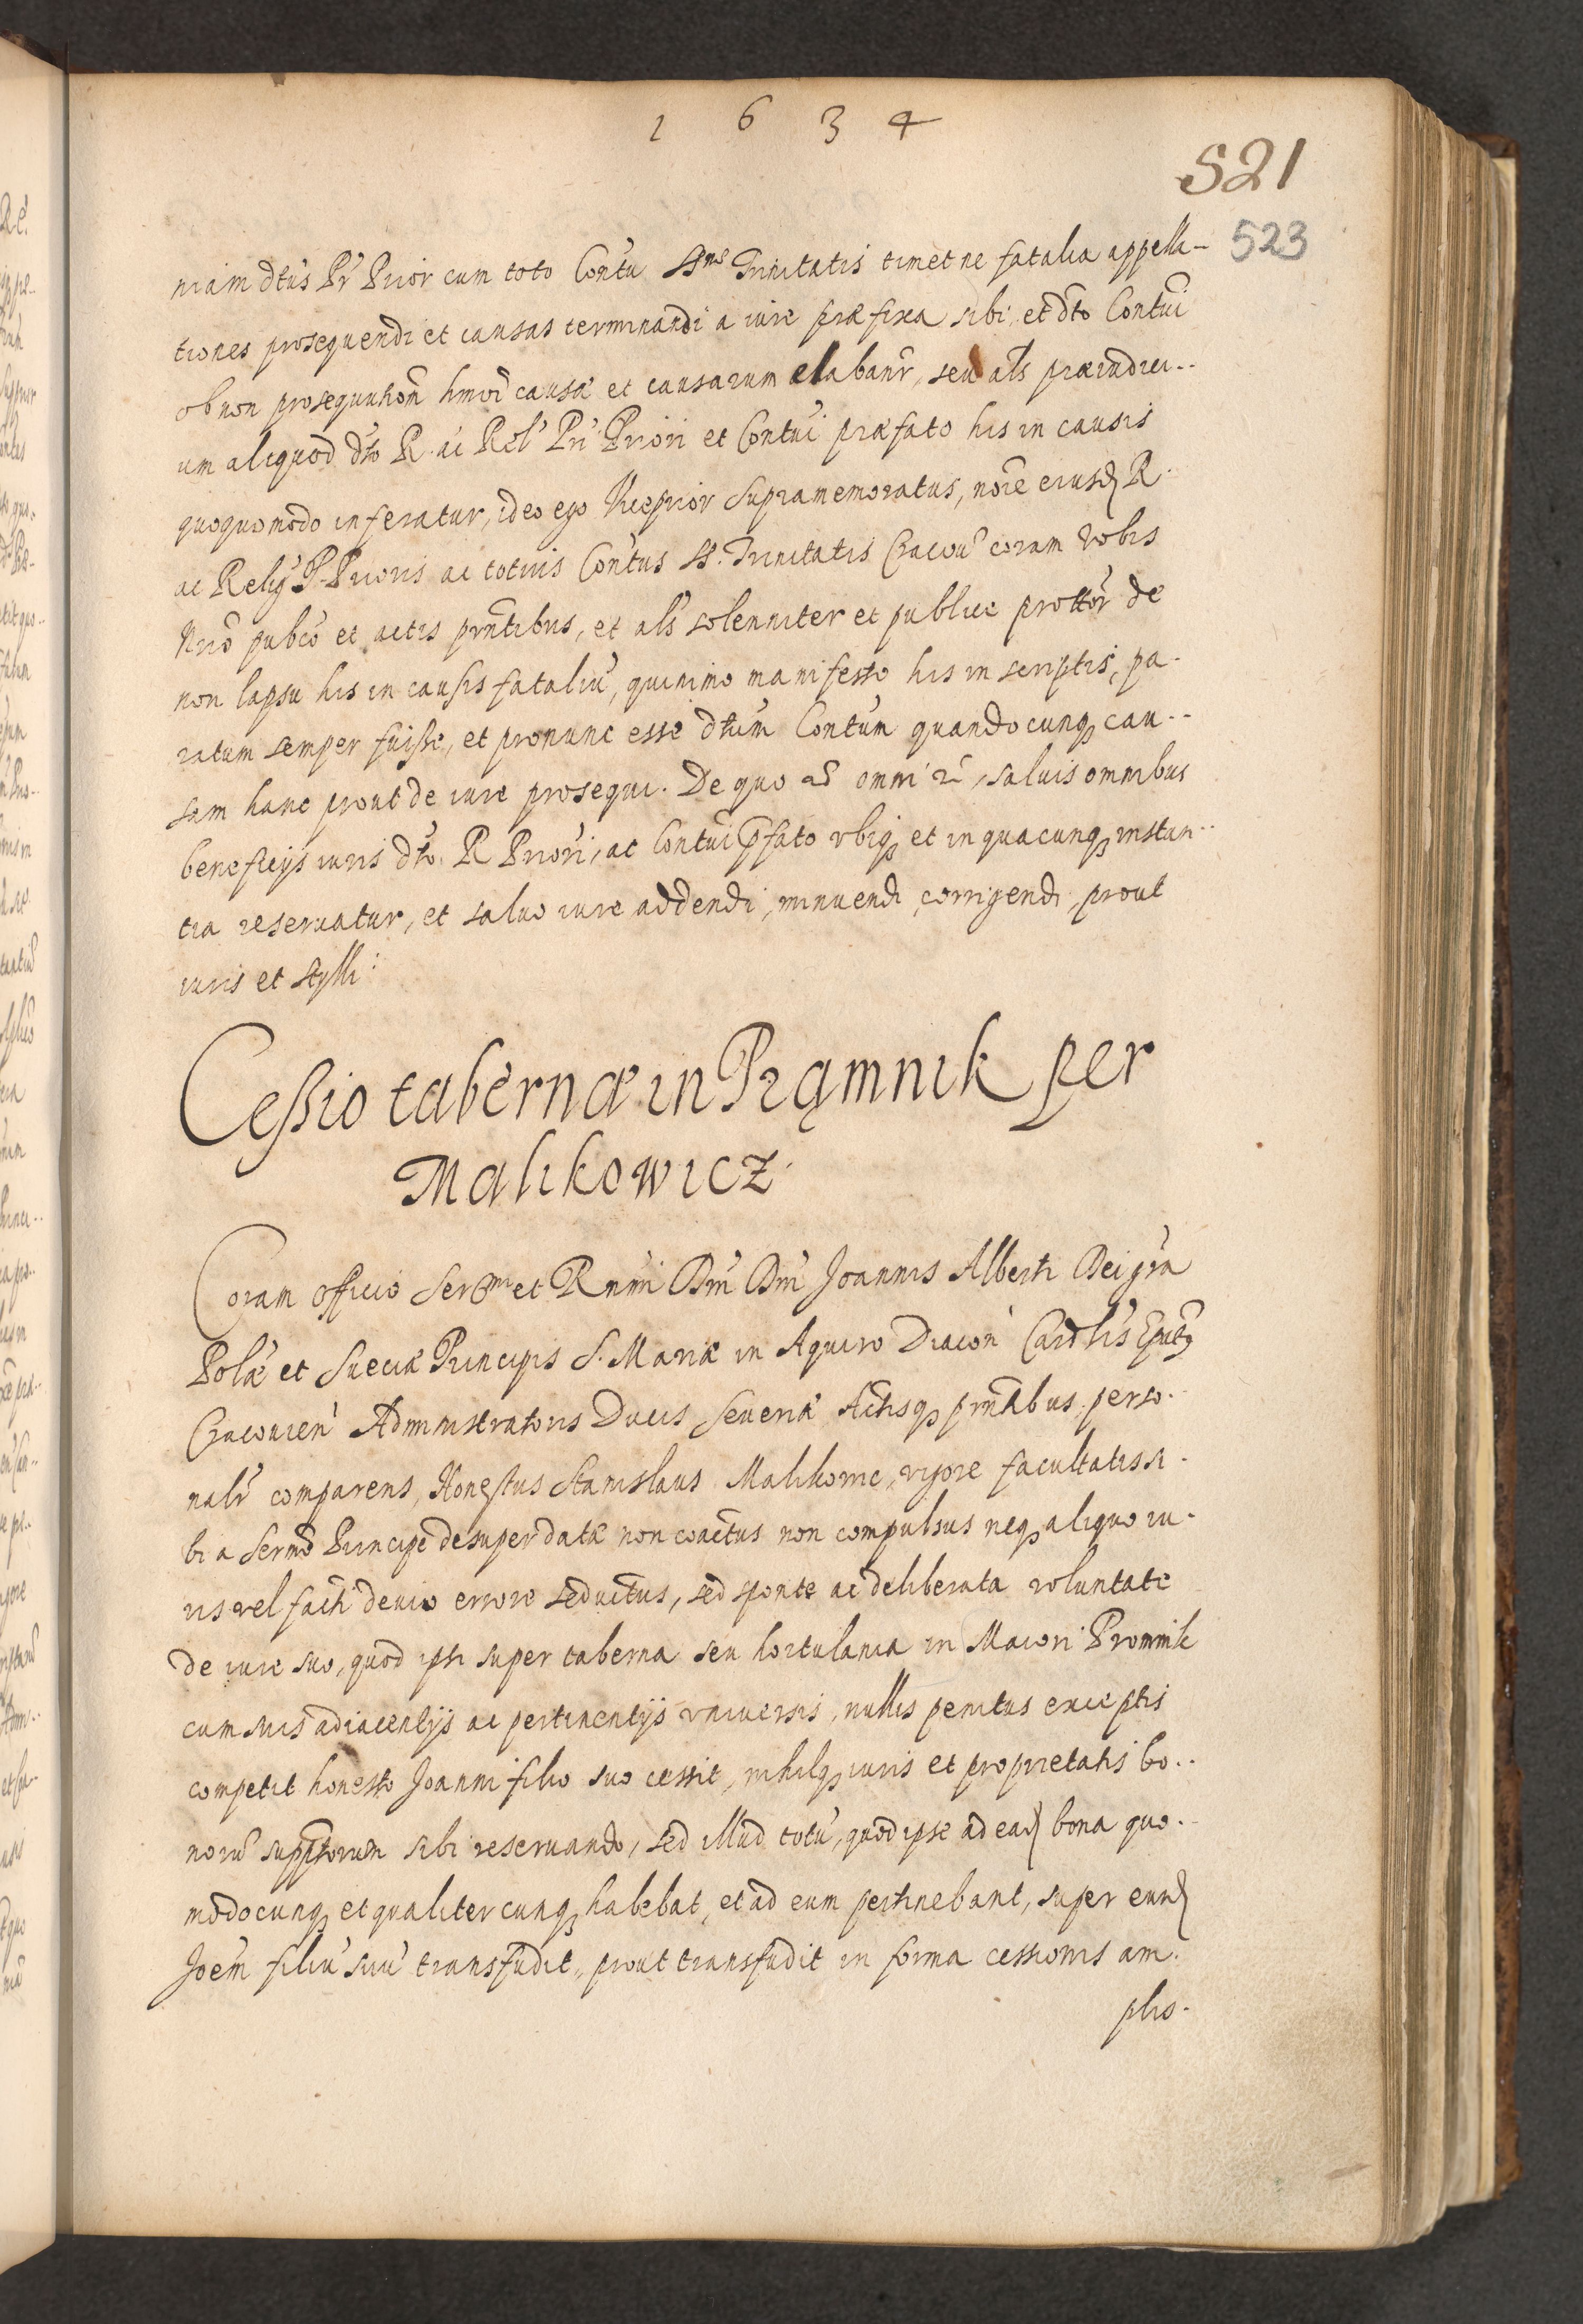 1 6 3 4
521
523
niam dtus Pr Prior cum toto Contu SSmæ Trinitatis timet ne fatalia appella-
tiones prosequendi et causas terminandi a iure præfixa sibi et dto Contui
ob non prosequutiom hmoi causæ et causarum elabantr, seu als præiudici-
um aliquod dto R. ac Rel Pri Priori et Contui præfato his in causis
quoquomodo inferatur, ideo ego Viceprior supramemoratus, noie eiusd R.
ac Relig P. Prioris ac totius Contus SS. Trinitatis Cracov coram Vobis
Nrio pubco et actis pntibus, et als solenniter et publice prottor de
non lapsu his in causis fataliu, quinimo manifesto his in scriptis, pa-
ratum semper fuisse, et pronunc esse dtum Contum quandocunq cau-
sam hanc prout de iure prosequi. De quo omni saluis omnibus
beneficijs iuris dto. R Priori, ac Contui pfato vbiq et in quacunq instan-
tia reseruatur, et saluo iure addendi, minuendi, corrigendi, prout
iuris et styli:
Cessio tabernæ in Prąmnik per
Malikowicz.
Coram officio Sermi et Rmi Dni Dni Joannis Alberti Dei gra
Polæ et Sueciæ Principis S. Mariæ in Aquiro Diacon Cardlis Eptus
Cracovien Administratoris Ducis Seueriæ Actisq pntibus perso-
nalr comparens, Honestus Stanislaus Malikowic, vigore facultatis si-
bi a Sermo Principe desuper datæ non coactus non compulsus neq aliquo iu-
ris vel facti deuio errore seductus, sed sponte ac deliberata voluntate
de iure suo, quod ipsi super taberna seu hortulania in Maiori Promnik
cum suis adiacentijs ac pertinentijs vniuersis, nullis penitus exceptis
competit honesto Joanni filio suo cessit, nihilq iuris et proprietatis bo-
noru supptorum sibi reseruando, sed illud totu, quod ipse ad ead bona quo-
modocunq et qualitercunq habebat, et ad eum pertinebant, super eund
Joem filiu suu transfudit, prout transfudit in forma cessionis am-
plis-